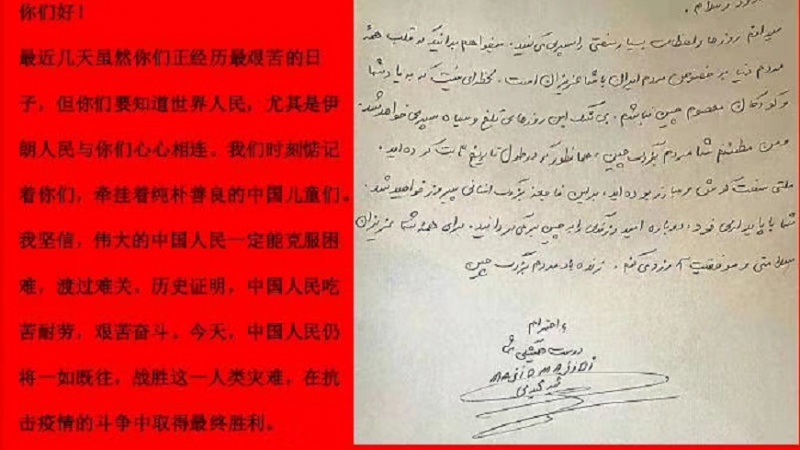 你们好！
最近几天虽然你们正经历最艰苦的日
子，但你们要知道世界人民，尤其是伊
朗人民与你们心心相连。我们时刻惦记
着你们，牵挂着纯朴善良的中国儿童们。
我坚信，伟大的中国人民一定能克服困
难，渡过难关。历史证明，中国人民吃
苦耐劳，艰苦奋斗。今天，中国人民仍
将一如既往，战胜这一人类灾难，在抗
击疫情的斗争中取得最终胜利。
میدانم روزها و لحظات بسیار سختی را سپری می کنید. میخواهم بدانید که قلب همه
مردم دنیا به خصوص مردم ایران با شما عزیزان است. لحظه‌ای نیست که به یاد شما
و کودکان معصوم چین نباشم. بی شک این روزهای تلخ و سیاه سپری خواهد شد
و من مطمئنم شما مردم بزرگ چین، همانطور که در طول تاریخ ثابت کرده اید.
ملتی سخت کوش و مبارز بوده اید، براین فاجعه بزرگ انسانی پیروز خواهید شد.
شما با پایداری خود، دوباره امید و زندگی را به چین برمی گردانید. برای همه شما عزیزان
سلامتی و موفقیت آرزو می کنم. زنده باد مردم بزرگ چین
با احترام
دوست همیشگی
majidmajidi
مجید مجیدی